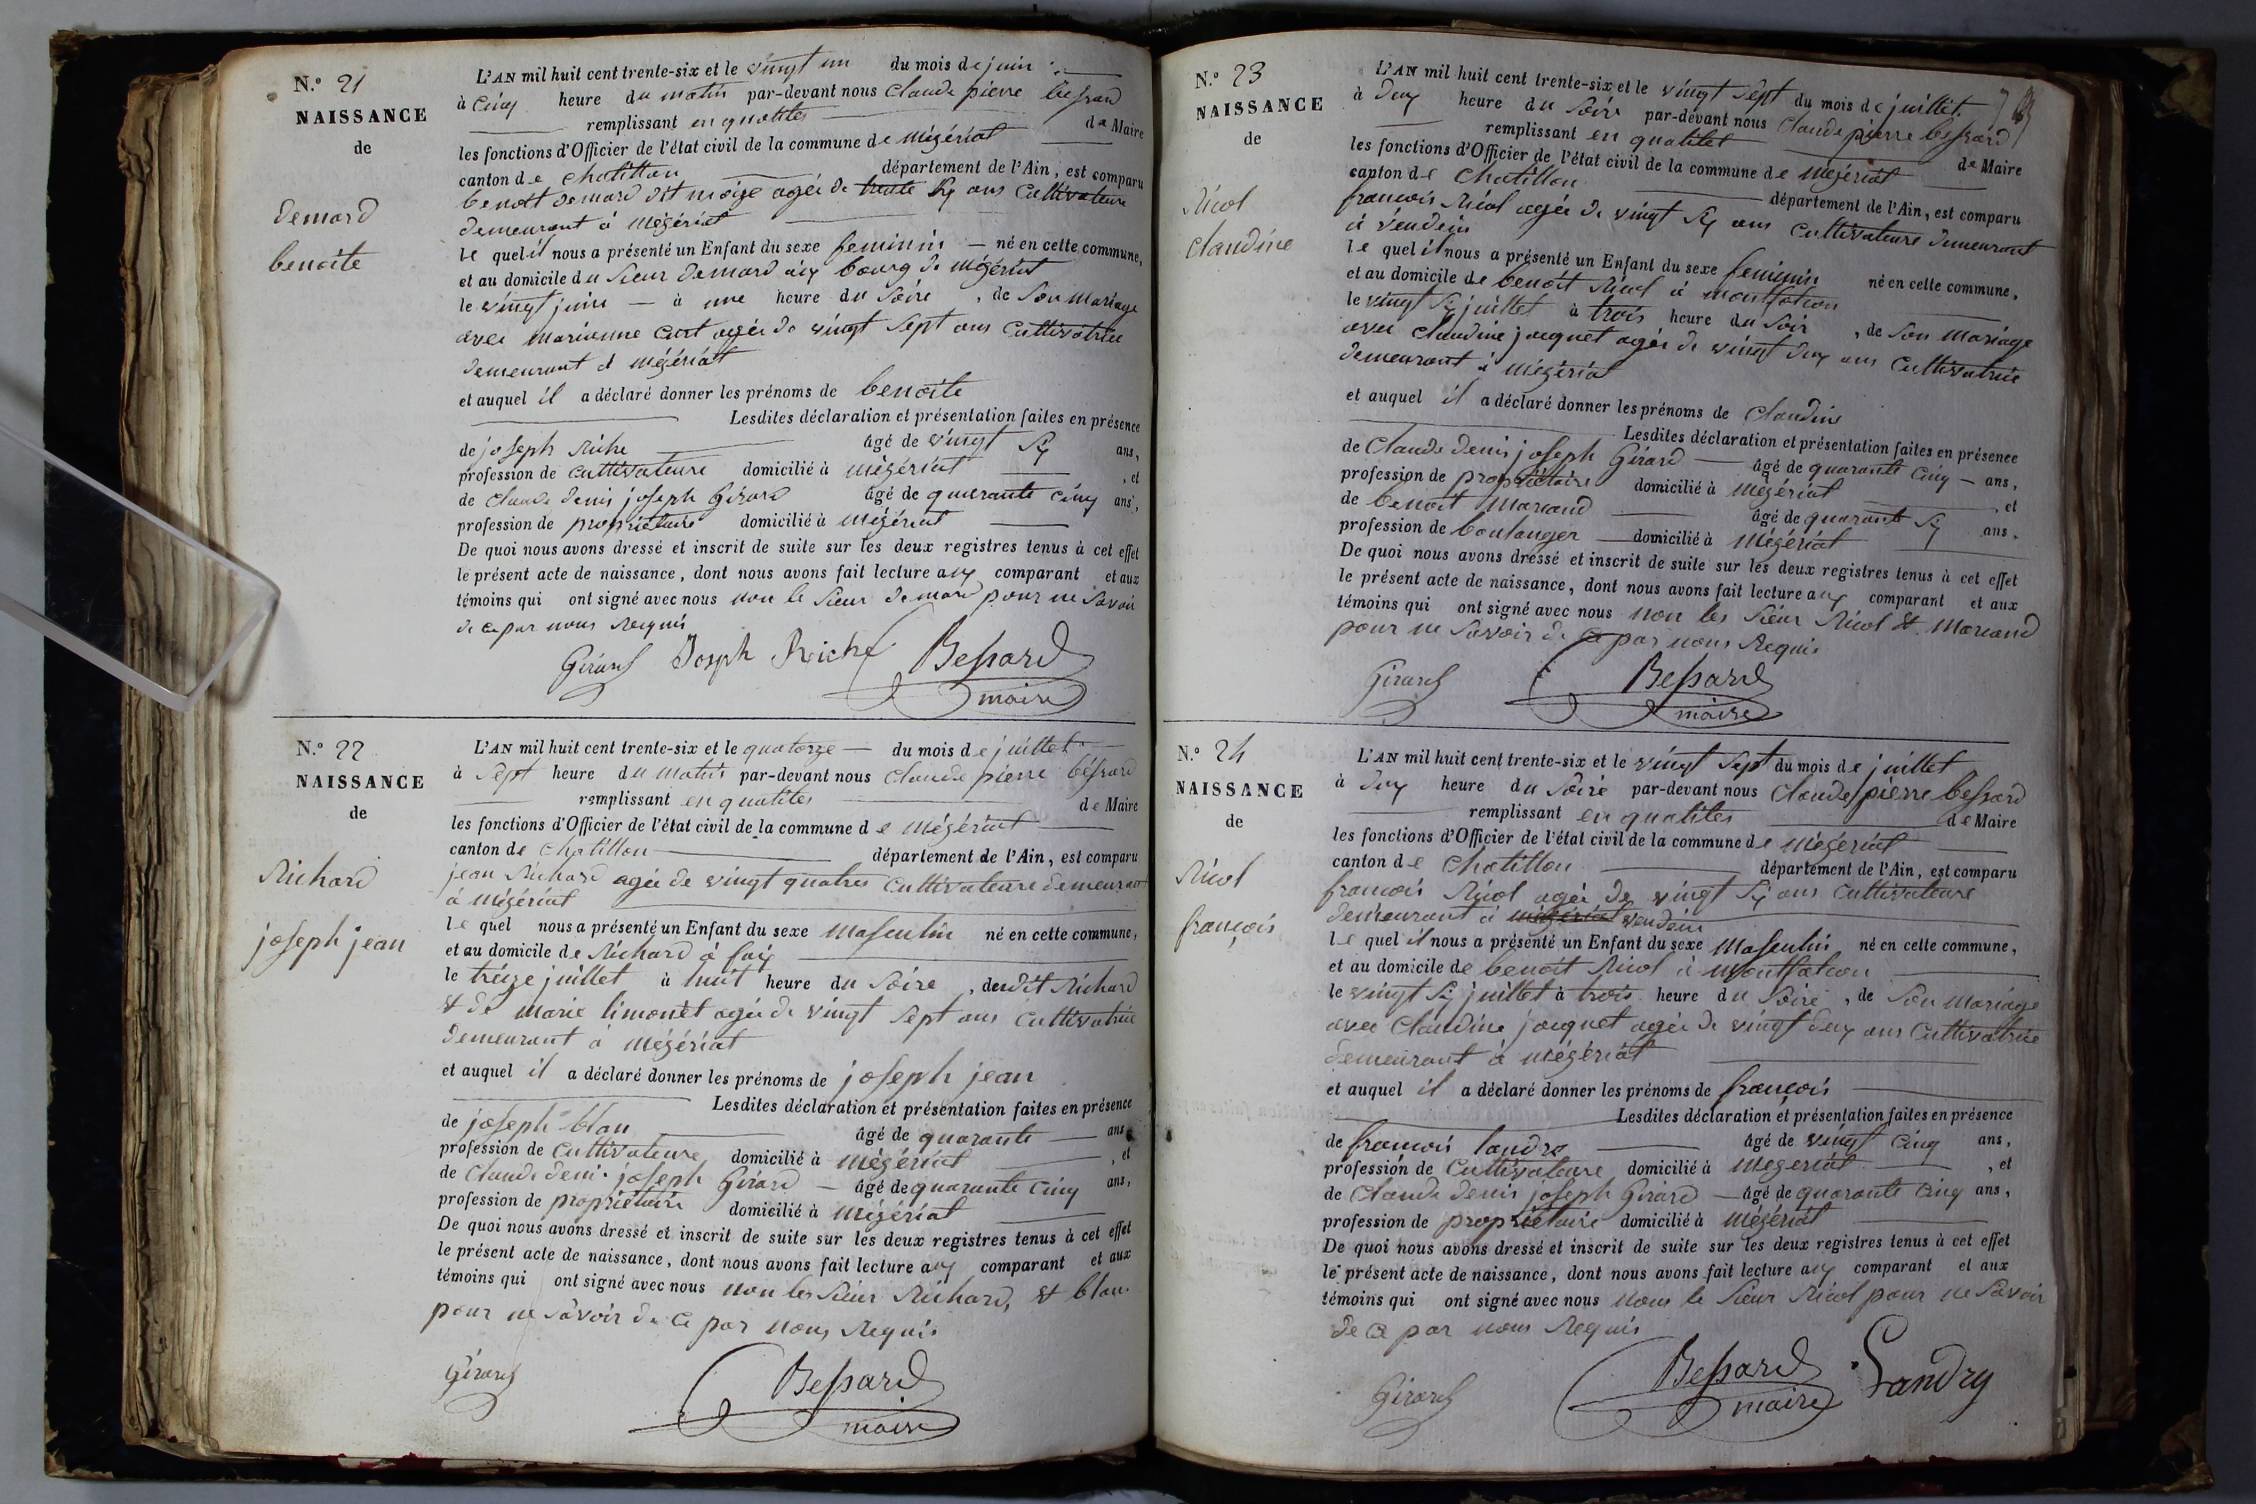 N.° 21
NAISSANCE
de
demard
benoite
L'AN mil huit cent trente-six et le vingt un du mois de juin
à cinq heure du matin par-devant nous Claude pierre bessard
remplissant en qualités de Maire
les fonctions d'Officier de l'état civil de la commune de mézériat
canton de chatillon département de l'Ain, est comparu
benoit demard dit moize agée de trente six ans cultivateure
demeurant à mézériat
le quel il nous a présenté un Enfant du sexe feminin né en cette commune,
et au domicile du sieur demard aux bourg de mézériat
le vingt juin à une heure du soire, de son mariage
avec marianne curt agée de vingt sept ans cultivatrice
demeurant à mézériat
et auquel il a déclaré donner les prénoms de benoite
Lesdites déclaration et présentation faites en présence
de joseph riche âgé de vingt six ans,
profession de cultivateure domicilié à mézériat, et
de claude denis joseph Girard âgé de quarante cinq ans,
profession de propriétaire domicilié à mézériat
De quoi nous avons dressé et inscrit de suite sur les deux registres tenus à cet effet
le présent acte de naissance, dont nous avons fait lecture aux comparant et aux
témoins qui ont signé avec nous non le sieur demard pour ne savoir
de ce par nous requis
Girard Joseph Riche Bessard
maire
N.° 22
NAISSANCE
de
Richard
joseph jean
L'AN mil huit cent trente-six et le quatorze du mois de juillet
à sept heure du matin par-devant nous claude pierre bessard
remplissant en qualites de Maire
les fonctions d'Officier de l'état civil de la commune de mézériat
canton de chatillon département de l'Ain, est comparu
jean Richard agée de vingt quatres cultivateure demeurant
à mézériat
le quel nous a présenté un Enfant du sexe masculin né en cette commune,
et au domicile de Richard à
le treize juillet à huit heure du soire, dudit Richard
et de marie limonet agée de vingt sept ans cultivatrice
demeurant à mézériat
et auquel il a déclaré donner les prénoms de joseph jean
Lesdites déclaration et présentation faites en présence
de joseph blan âgé de quarante ans
profession de cultivateure domicilié à mézériat, et
de claude denis joseph Girard âgé de quarante cinq ans,
profession de propriétaire domicilié à mézériat
De quoi nous avons dressé et inscrit de suite sur les deux registres tenus à cet effet
le présent acte de naissance, dont nous avons fait lecture aux comparant et aux
témoins qui ont signé avec nous non les sieur Richard, et blan
pour ne savoir de ce par nous requis
Girard Bessard
maire
N.° 23
NAISSANCE
de
Nicol
claudine
L'AN mil huit cent trente-six et le vingt sept du mois de juillet
à dux heure du soire par-devant nous claude pierre bessard
remplissant en qualitet de Maire
les fonctions d'Officier de l'état civil de la commune de mézériat
canton de chatillon département de l'Ain, est comparu
françois Nicol agée de vingt six ans cultivateure demeurant
à vendein
le quel il nous a présenté un Enfant du sexe feminin né en cette commune,
et au domicile de benoit Nicol à montfalcon
le vingt six juillet à trois heure du soir, de son mariage
avec claudine jaquet agée de vingt dux ans cultivatrice
demeurant à mézériat
et auquel il a déclaré donner les prénoms de claudine
Lesdites déclaration et présentation faites en présence
de claude denis joseph Girard âgé de quarante cinq ans,
profession de propriétaire domicilié à mézériat, et
de benoit marcand âgé de quarante six ans.
profession de boulanger domicilié à mézériat
De quoi nous avons dressé et inscrit de suite sur les deux registres tenus à cet effet
le présent acte de naissance, dont nous avons fait lecture aux comparant et aux
témoins qui ont signé avec nous non les sieur Nicol et marcand
pour ne savoir de ce par nous requis
Girard Bessard
maire
N.° 24
NAISSANCE
de
Nicol
françois
L'AN mil huit cent trente-six et le vingt sept du mois de juillet
à dux heure du soire par-devant nous claude pierre bessard
remplissant en qualites de Maire
les fonctions d'Officier de l'état civil de la commune de mézériat
canton de chatillon département de l'Ain, est comparu
françois Nicol agée de vingt six ans cultivateure
demeurant à mézériat vendein
le quel il nous a présenté un Enfant du sexe masculin né en cette commune,
et au domicile de benoit Nicol à montfalcon
le vingt six juillet à trois heure du soire, de son mariage
avec claudine jaquet agée de vingt deux ans cultivatrice
demeurant à mézériat
et auquel il a déclaré donner les prénoms de françois
Lesdites déclaration et présentation faites en présence
de françois landre âgé de vingt cinq ans,
profession de cultivateure domicilié à mezeriat, et
de claude denis joseph Girard âgé de quarante cinq ans,
profession de propriétaire domicilié à mézériat
De quoi nous avons dressé et inscrit de suite sur les deux registres tenus à cet effet
le présent acte de naissance, dont nous avons fait lecture aux comparant et aux
témoins qui ont signé avec nous nous le sieur Nicol pour ne savoir
de ce par nous requis
Girard Bessard Landry
maire